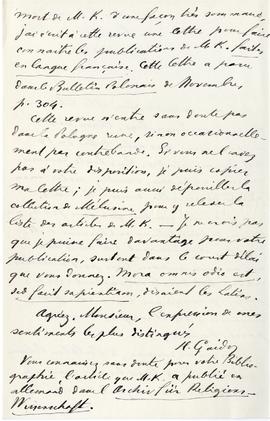 mort de M. K. d'une façon très sommaire,
j'ai écrit à cette revue une lettre pour faire
connaître les publications de M. K. faites
en langue française. Cette lettre a paru
dans le Bulletin Polonais de Novembre,
p. 304.
Cette revue n'entre sans doute pas
dans la Pologne russe, sinon occasionnelle-
ment par contrebande. Si vous ne l'avez
pas à votre disposition, je puis copier
ma lettre; je puis aussi dépouiller la
collection de Mélusine, pour y relever la
liste des articles de M. K. — Je ne crois pas
que je puisse faire davantage pour votre
publication, surtout dans le court délai
que vous donnez. Mora omnis odio est,
sed facit sapientiam, disaient les Latins.
Agréez, Monsieur, l'expression de mes
sentiments les plus distingués
H. Gaidoz
Vous connaissez sans doute, pour votre Biblio-
graphie, l'article que M. K. a publié en
allemand dans l'Archiv für Religions-
Wissenschaft.